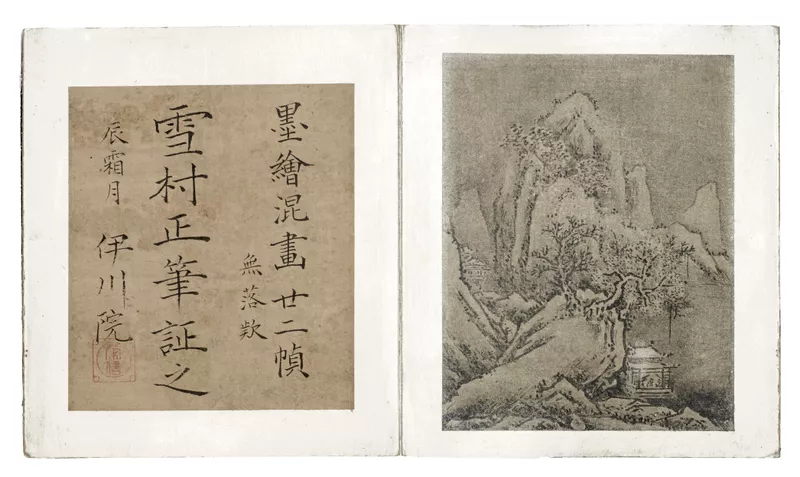 墨繪混畫廿二幀
無落欵
雪村正筆証之
辰霜月 伊川院